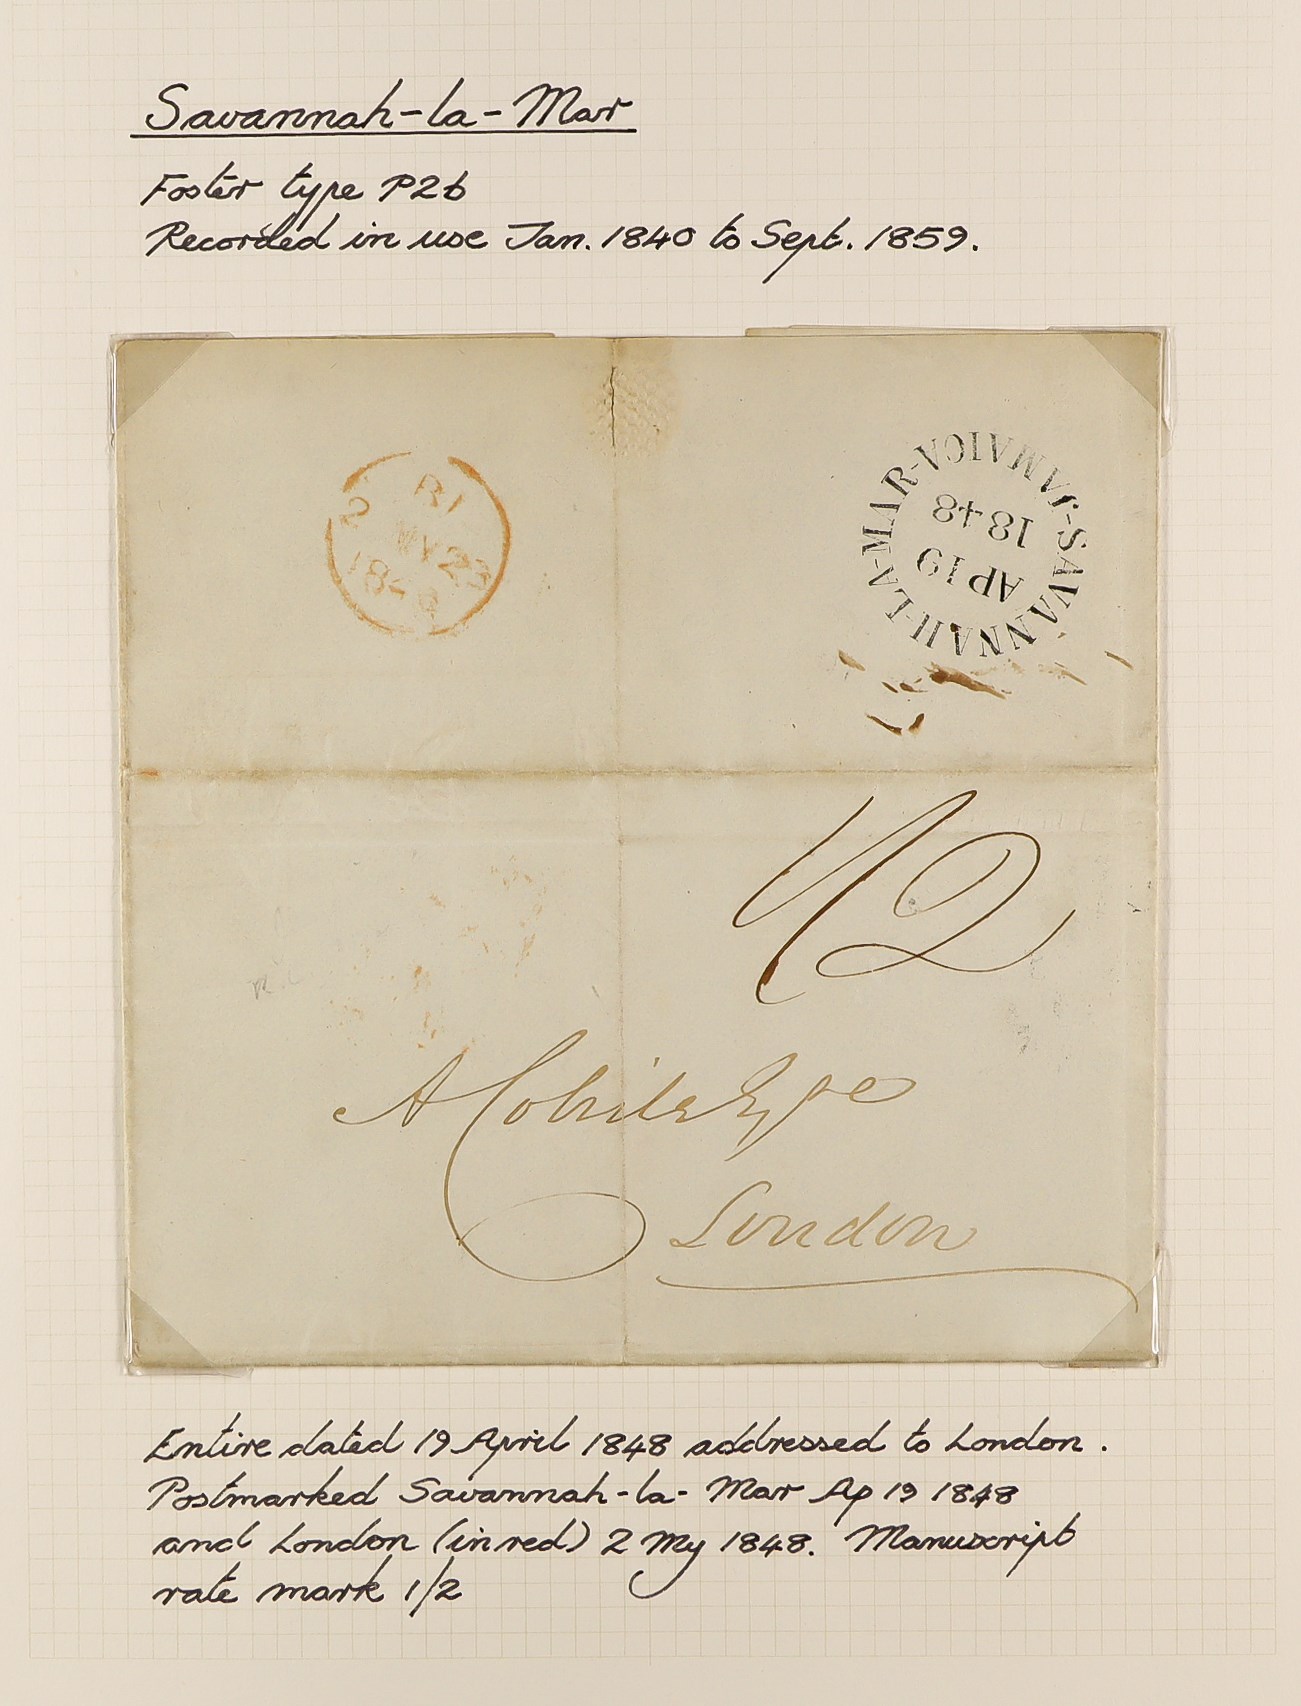 Savannah-la-Mar
Foster type P2b
Recorded in use Jan. 1840 to Sept. 1859.
2 RI
MY 23
184
SAVANNAH-LA-MAR-JAMAICA-
1848
AP 19
1/2
A Colvile Esqre
London
Entire dated 19 April 1848 addressed to London.
Postmarked Savannah-la-Mar Ap 19 1848
and London (in red) 2 My 1848. Manuscript
rate mark 1/2